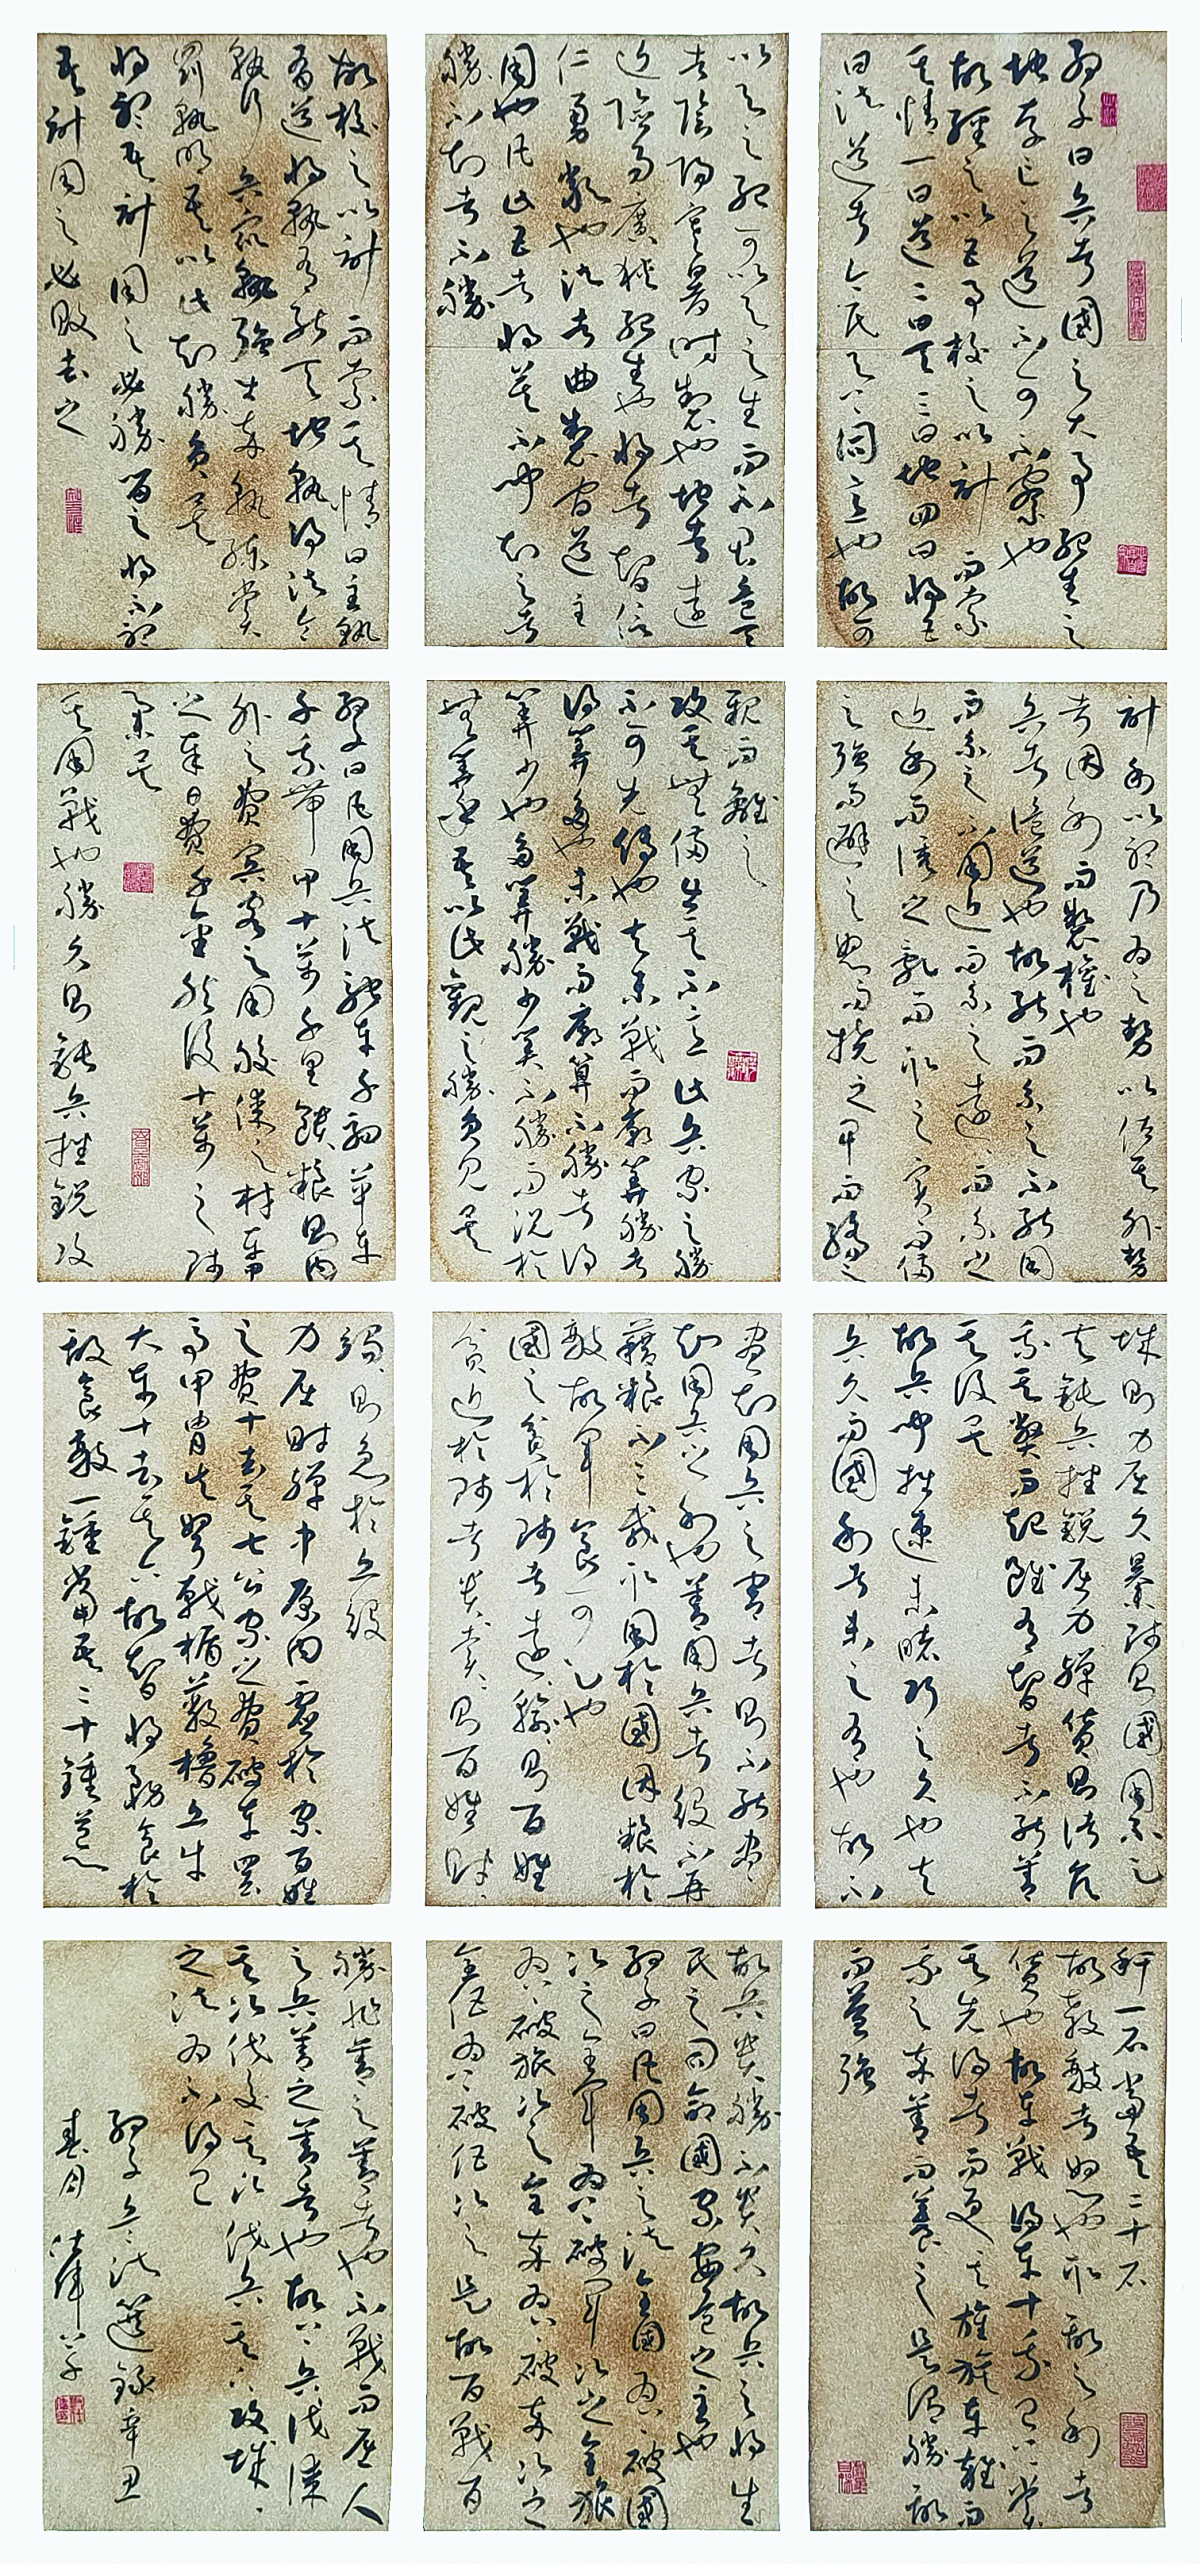 孫子曰兵者國之大事死生之
地存亡之道不可不察也
故經之以五事校之以計而索
其情一曰道二曰天三曰地四曰將五
曰法道者令民與上同意也故可
以與之死可以與之生而不畏危天
者陰陽寒暑時制也地者遠
近險易廣狹死生也將者智信
仁勇嚴也法者曲制官道主
用也凡此五者將莫不聞知之者
勝不知者不勝
故校之以計而索其情曰主孰
有道將孰有能天地孰得法令
孰行兵眾孰強士卒孰練賞
罰孰明吾以此知勝負矣
將聽吾計用之必勝留之將不聽
吾計用之必敗去之
計利以聽乃為之勢以佐其外勢
者因利而制權也
兵者詭道也故能而示之不能用
而示之不用近而示之遠遠而示之
近利而誘之亂而取之實而備
之強而避之怒而撓之卑而驕之
親而離之
攻其無備出其不意此兵家之勝
不可先傳也夫未戰而廟算勝者
得算多也未戰而廟算不勝者得
算少也多算勝少算不勝而況於
無算乎吾以此觀之勝負見矣
孫子曰凡用兵法馳車千駟革車
千乘帶甲十萬千里饋糧則內
外之費賓客之用膠漆之材車甲
之奉日費千金然後十萬之師
舉矣
其用戰也勝久則鈍兵挫銳攻
城則力屈久暴師則國用不足
夫鈍兵挫銳屈力殫貨則諸侯
乘其弊而起雖有智者不能善
其後矣
故兵聞拙速未睹巧之久也夫
兵久而國利者未之有也故不
盡知用兵之害者則不能盡
知用兵之利也善用兵者役不再
籍糧不三載取用於國因糧於
敵故軍食可足也
國之貧於師者遠輸遠輸則百姓
貧近於師者貴賣貴賣則百姓財
竭竭則急於丘役
力屈財殫中原內虛於家百姓
之費十去其七公家之費破車罷
馬甲冑矢弩戟楯蔽櫓丘牛
大車十去其六故智將務食於
敵食敵一鍾當吾二十鍾萁
秆一石當吾二十石
故殺敵者怒也取敵之利者
貨也故車戰得車十乘已上賞
其先得者而更其旌旗車雜而
乘之卒善而養之是謂勝敵
而益強
故兵貴勝不貴久故兵之將生
民之司命國家安危之主也
孫子曰凡用兵之法全國為上破國
次之全軍為上破軍次之全旅
為上破旅次之全卒為上破卒次之
全伍為上破伍次之是故百戰百
勝非善之善者也不戰而屈人
之兵善之善者也故上兵伐謀
其次伐交其次伐兵其下攻城攻城
之法為不得已
孫子兵法選錄辛丑
春月